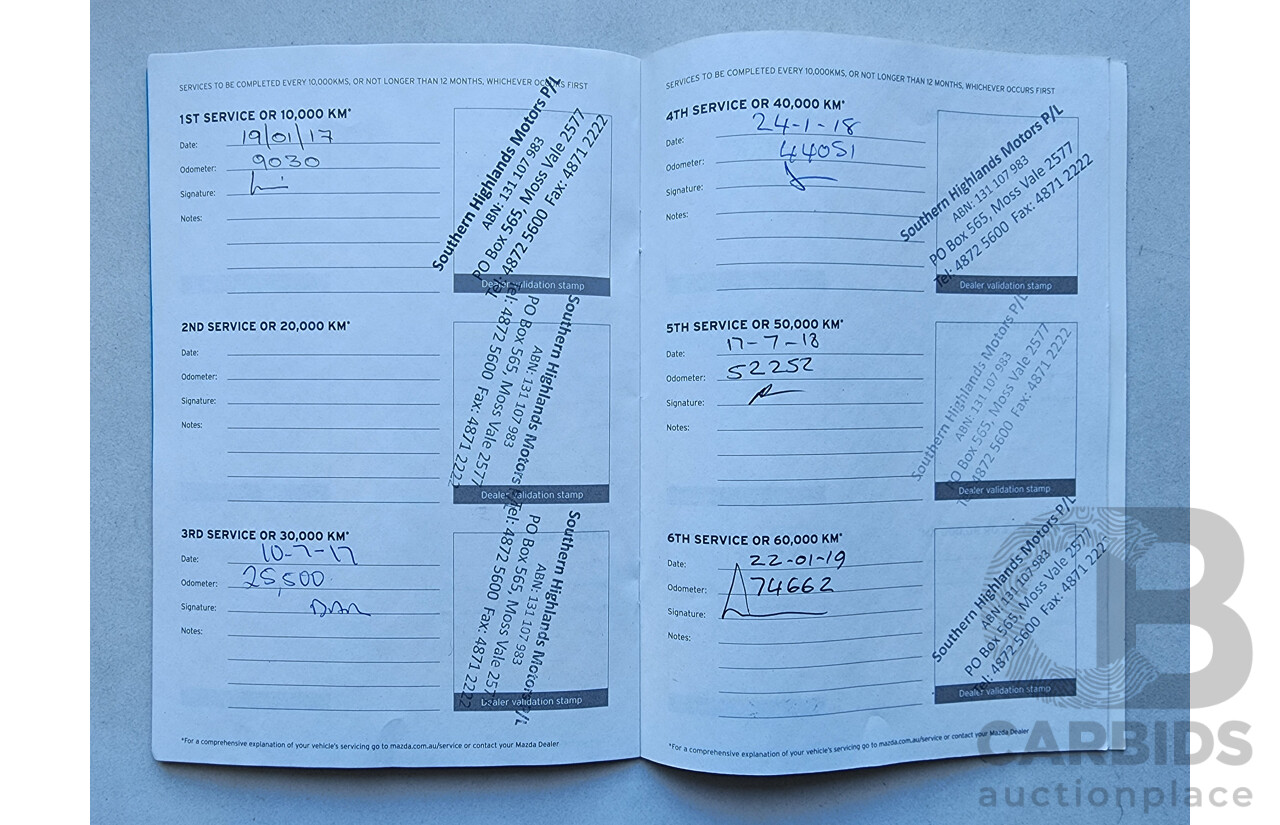 SERVICES TO BE COMPLETED EVERY 10,000KMS, OR NOT LONGER THAN 12 MONTHS, WHICHEVER OCCURS FIRST
1ST SERVICE OR 10,000 KM*
Date: 19/01/17
Odometer: 9030
Signature:
Notes:
Southern Highlands Motors P/L
ABN: 131 107 983
PO Box 565, Moss Vale 2577
Tel: 4872 5600 Fax: 4871 2222
Dealer validation stamp
2ND SERVICE OR 20,000 KM*
Date:
Odometer:
Signature:
Notes:
Southern Highlands Motors P/L
ABN: 131 107 983
PO Box 565, Moss Vale 2577
Tel: 4872 5600 Fax: 4871 2222
Dealer validation stamp
3RD SERVICE OR 30,000 KM*
Date: 10-7-17
Odometer: 25,500
Signature:
Notes:
Southern Highlands Motors P/L
ABN: 131 107 983
PO Box 565, Moss Vale 2577
Tel: 4872 5600 Fax: 4871 2222
Dealer validation stamp
*For a comprehensive explanation of your vehicle's servicing go to mazda.com.au/service or contact your Mazda Dealer
SERVICES TO BE COMPLETED EVERY 10,000KMS, OR NOT LONGER THAN 12 MONTHS, WHICHEVER OCCURS FIRST
4TH SERVICE OR 40,000 KM*
Date: 24-1-18
Odometer: 44051
Signature:
Notes:
Southern Highlands Motors P/L
ABN: 131 107 983
PO Box 565, Moss Vale 2577
Tel: 4872 5600 Fax: 4871 2222
Dealer validation stamp
5TH SERVICE OR 50,000 KM*
Date: 17-7-18
Odometer: 52252
Signature:
Notes:
Southern Highlands Motors P/L
ABN: 131 107 983
PO Box 565, Moss Vale 2577
Tel: 4872 5600 Fax: 4871 2222
Dealer validation stamp
6TH SERVICE OR 60,000 KM*
Date: 22-01-19
Odometer: 74662
Signature:
Notes:
Southern Highlands Motors P/L
ABN: 131 107 983
PO Box 565, Moss Vale 2577
Tel: 4872 5600 Fax: 4871 222
Dealer validation stamp
*For a comprehensive explanation of your vehicle's servicing go to mazda.com.au/service or contact your Mazda Dealer
CARBIDS
auctionplace